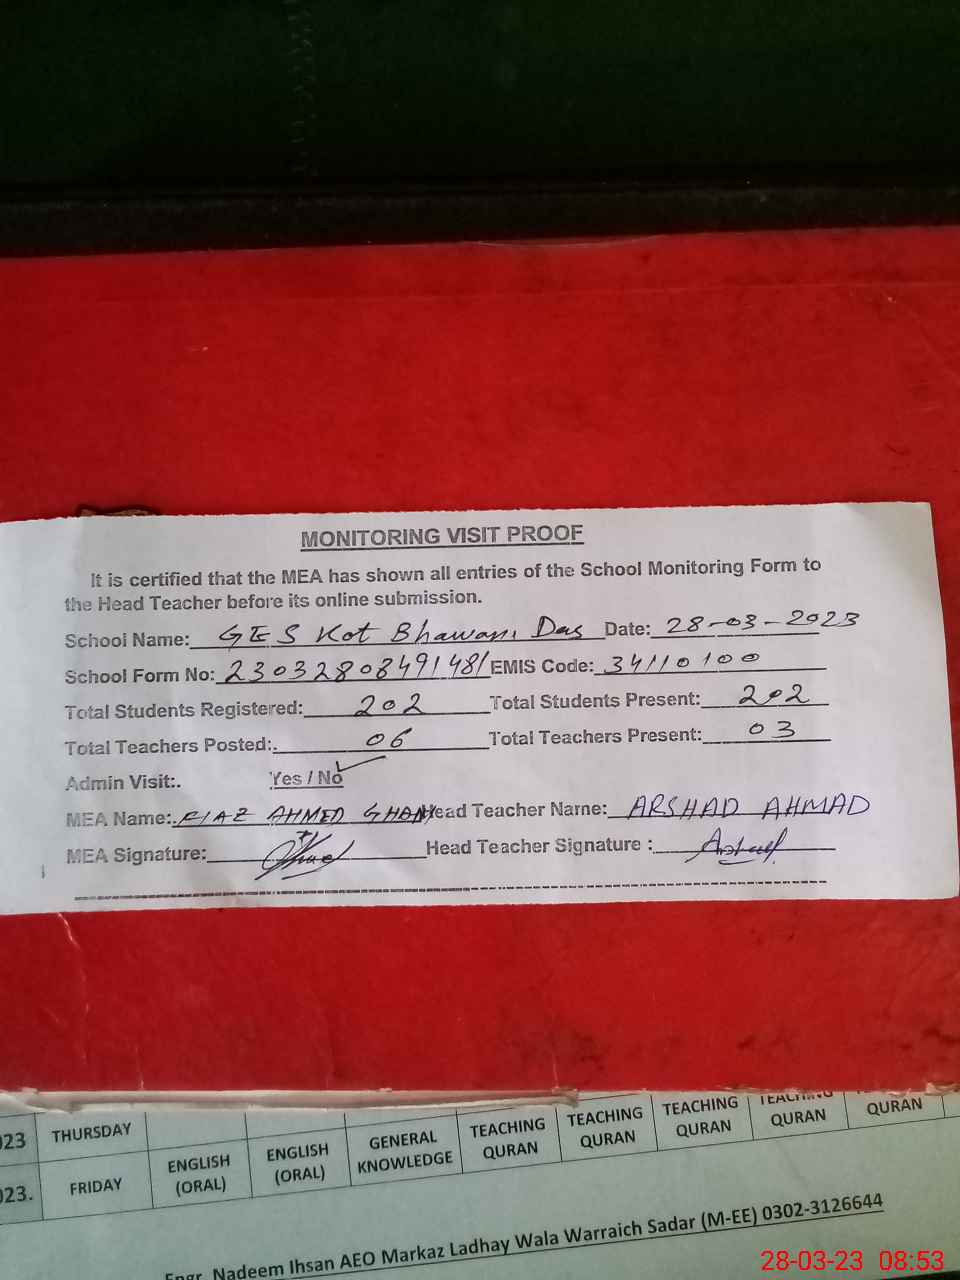 MONITORING VISIT PROOF
It is certified that the MEA has shown all entries of the School Monitoring Form to
the Head Teacher before its online submission.
School Name: GES Kot Bhawani Das Date: 28-03-2023
School Form No: 23032808491481 EMIS Code: 34110100
Total Students Registered: 202 Total Students Present: 202
Total Teachers Posted: 06 Total Teachers Present: 03
Admin Visit:. Yes / No
MEA Name: FIAZ AHMED GHANI Head Teacher Name: ARSHAD AHMAD
MEA Signature: Head Teacher Signature : Arshad
023 THURSDAY GENERAL KNOWLEDGE TEACHING QURAN TEACHING QURAN TEACHING QURAN TEACHING QURAN QURAN
023. FRIDAY ENGLISH (ORAL) ENGLISH (ORAL)
Engr. Nadeem Ihsan AEO Markaz Ladhay Wala Warraich Sadar (M-EE) 0302-3126644
28-03-23 08:53